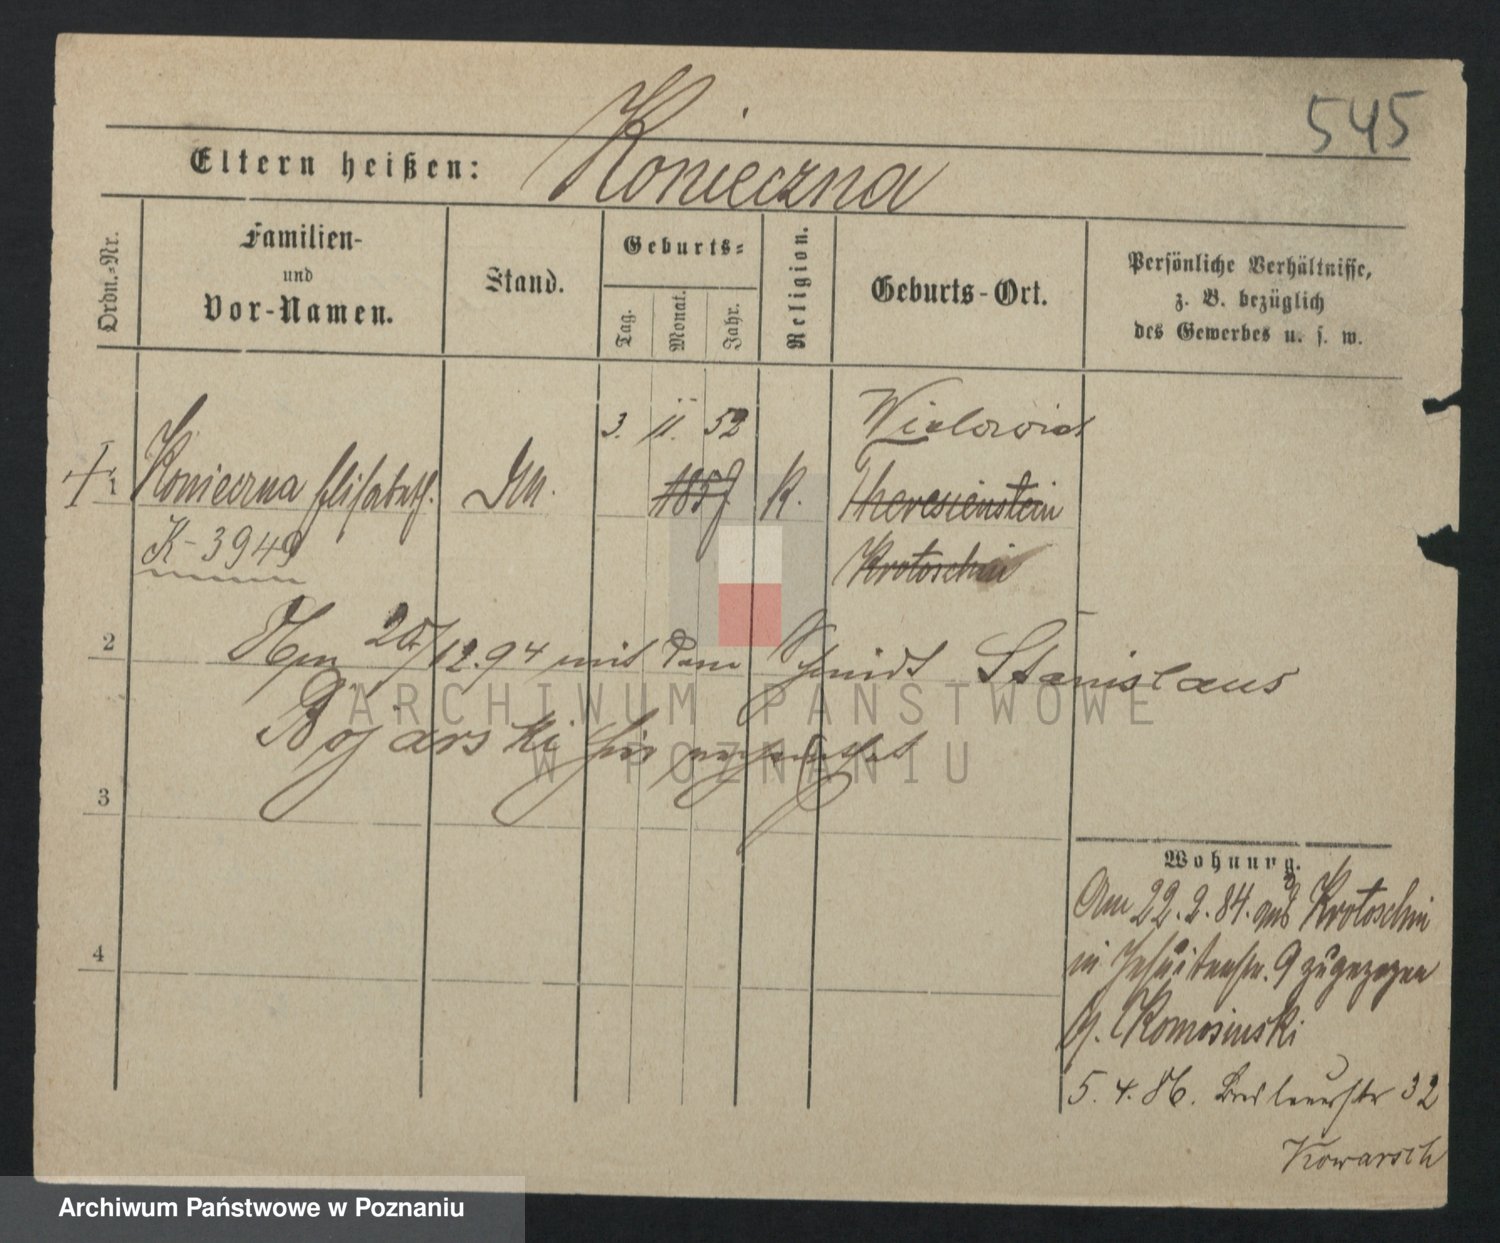 545
Eltern heißen: Konieczna
Ordn.-Nr.
Familien-
und
Vor-Namen.
Stand.
Geburts-
Tag.
Monat.
Jahr.
Religion.
Geburts-Ort.
Persönliche Verhältnisse,
z. B. bezüglich
des Gewerbes u. s. w.
3. 11. 52
1
Konieczna Elisabeth.
1857
K.
Theresienstein
K-3949
Krotoschin
2
20/12.94 mit dem Schmidt Stanislaus
Bojarski hier
3
ARCHIWUM PAŃSTWOWE
W POZNANIU
Wohnung.
Am 22.2.84. aus Krotoschin
in Jesuitenstr. 9 zugezogen
b. Komosinski
4
5.4.86. Breslauerstr 32
Kowarsch
Archiwum Państwowe w Poznaniu